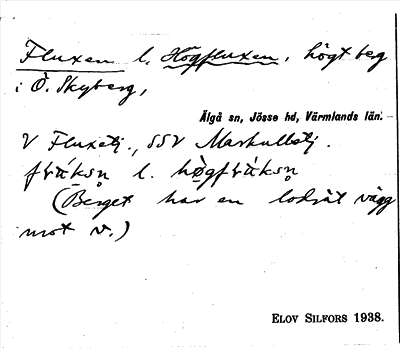 Fluxen l. Högfluxen, högt berg
i Ö. Skyberg,
Älgå sn, Jösse hd, Värmlands län.
V Fluxetj., SSV Markulletj.
l.
(Berget har en lodrät vägg
mot v.)
ELOV SILFORS 1938.